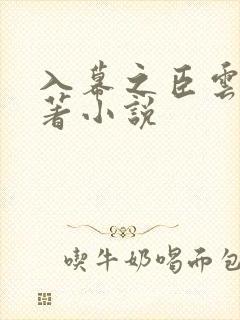 入幕之臣雲
著小說
喫牛奶喝而包